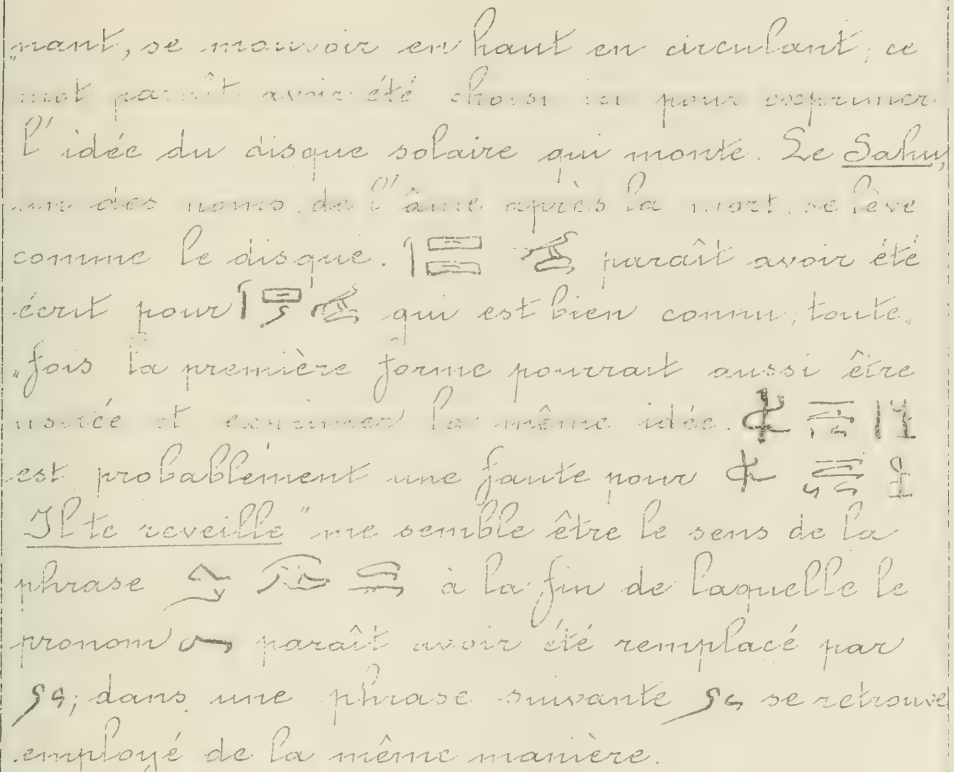 „nant, se mouvoir en haut en circulant; ce
mot paraît avoir été choisi ici pour exprimer
l'idée du disque solaire qui monte. Le Sahu,
un des noms de l'âme après la mort, se lève
comme le disque. paraît avoir été
écrit pour qui est bien connu; toute„
„fois la première forme pourrait aussi être
usitée et exprimer la même idée.
est probablement une faute pour
Il te reveille" me semble être le sens de la
phrase à la fin de laquelle le
pronom paraît avoir été remplacé par
; dans une phrase suivante se retrouve
employé de la même manière.